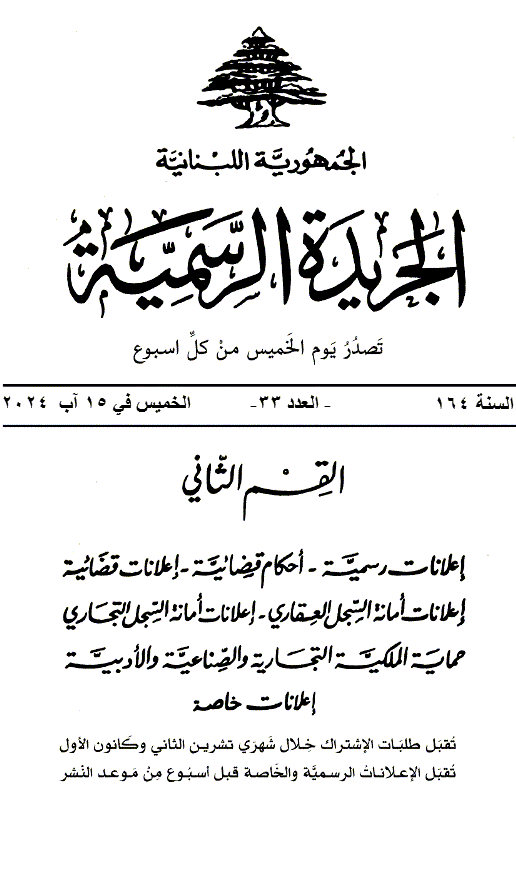 الجُمهُوريَّة اللبْنانيَّة
الجَريدَة الرسَّميَّة
تَصدُرُ يَوم الخَميس منْ كلِّ اسبوع
السنة ١٦٤ - العدد ٣٣- الخميس في ١٥ آب ٢٠٢٤
القِسْم الثّاني
إعلانات رسميَّة - أحكام قضائيَّة - إعلانات قضائية
إعلانات أمانة السِّجل العِقاري - إعلانات أمانة السِّجل التجاري
حماية الملكيَّة التجارية والصِّناعيَّة والأدبيَّة
إعلانات خاصة
تُقبَل طلبَات الإشتراك خِلال شَهرَي تشرين الثاني وكَانون الأول
تُقبَل الإعلاناتُ الرسميَّة والخَاصة قبل أسبُوع مِنْ مَوعد النَشر